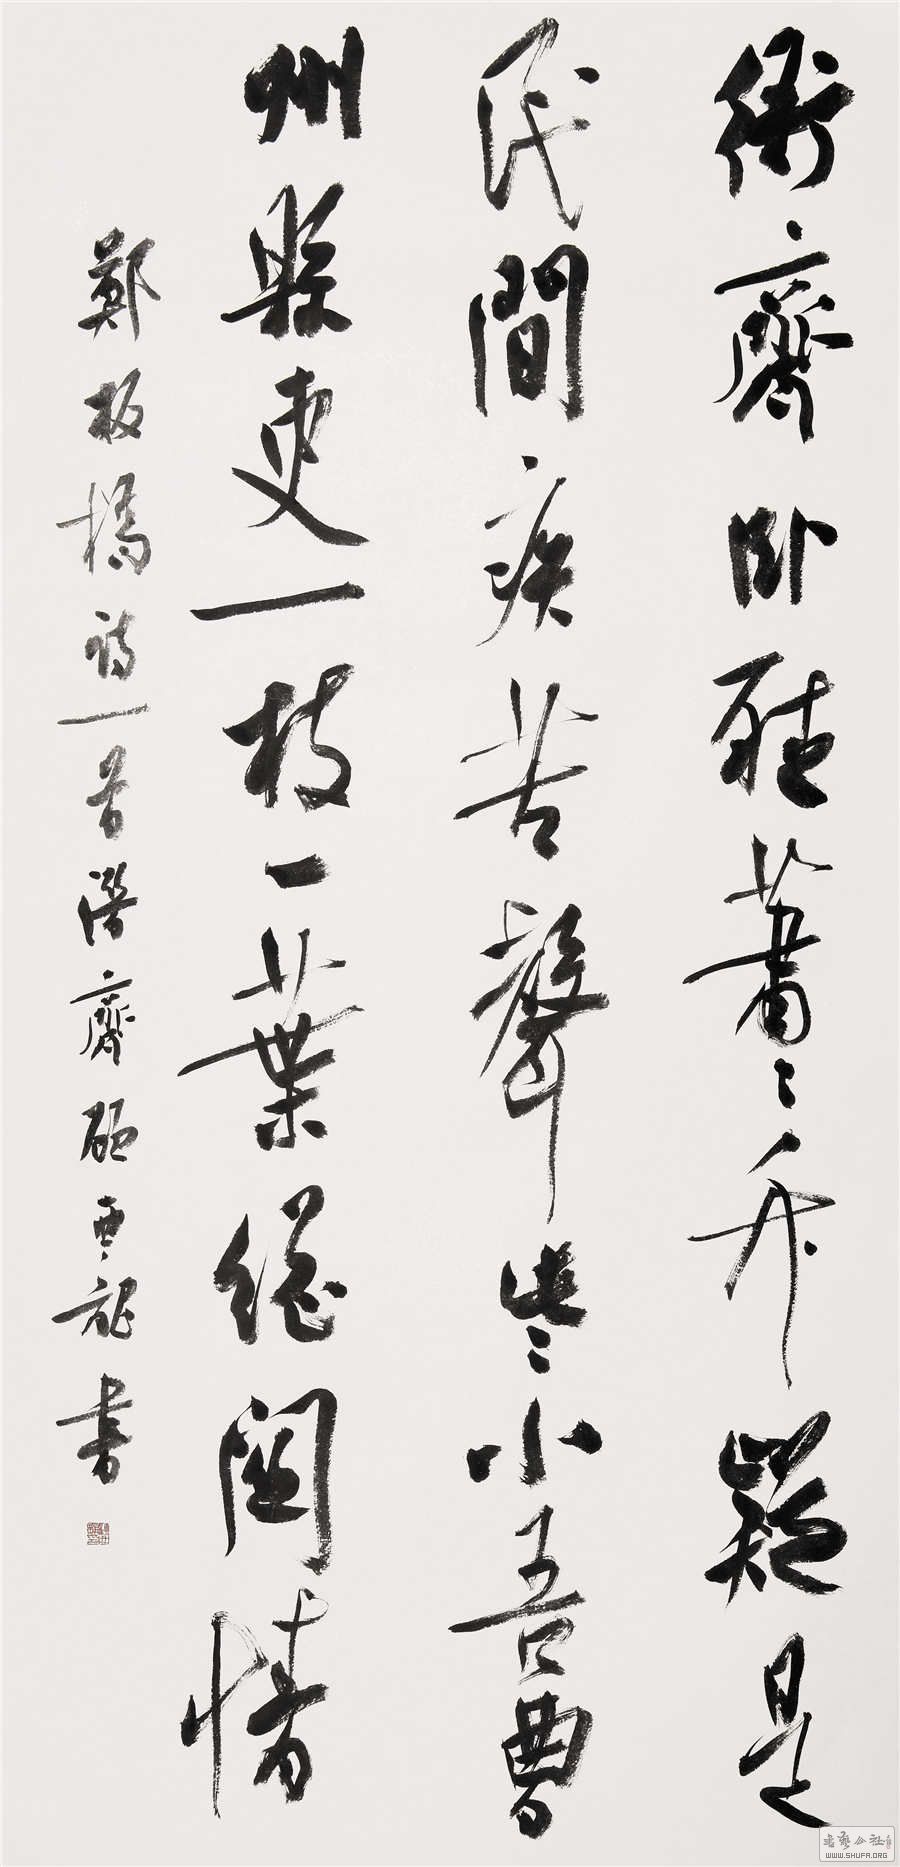 衙齋卧聽蕭〻竹疑是
民間疾苦聲些小吾曹
州縣吏一枝一葉總關情
鄭板橋詩一首潛齋顧亞龍書
書藝公社
WWW.SHUFA.ORG